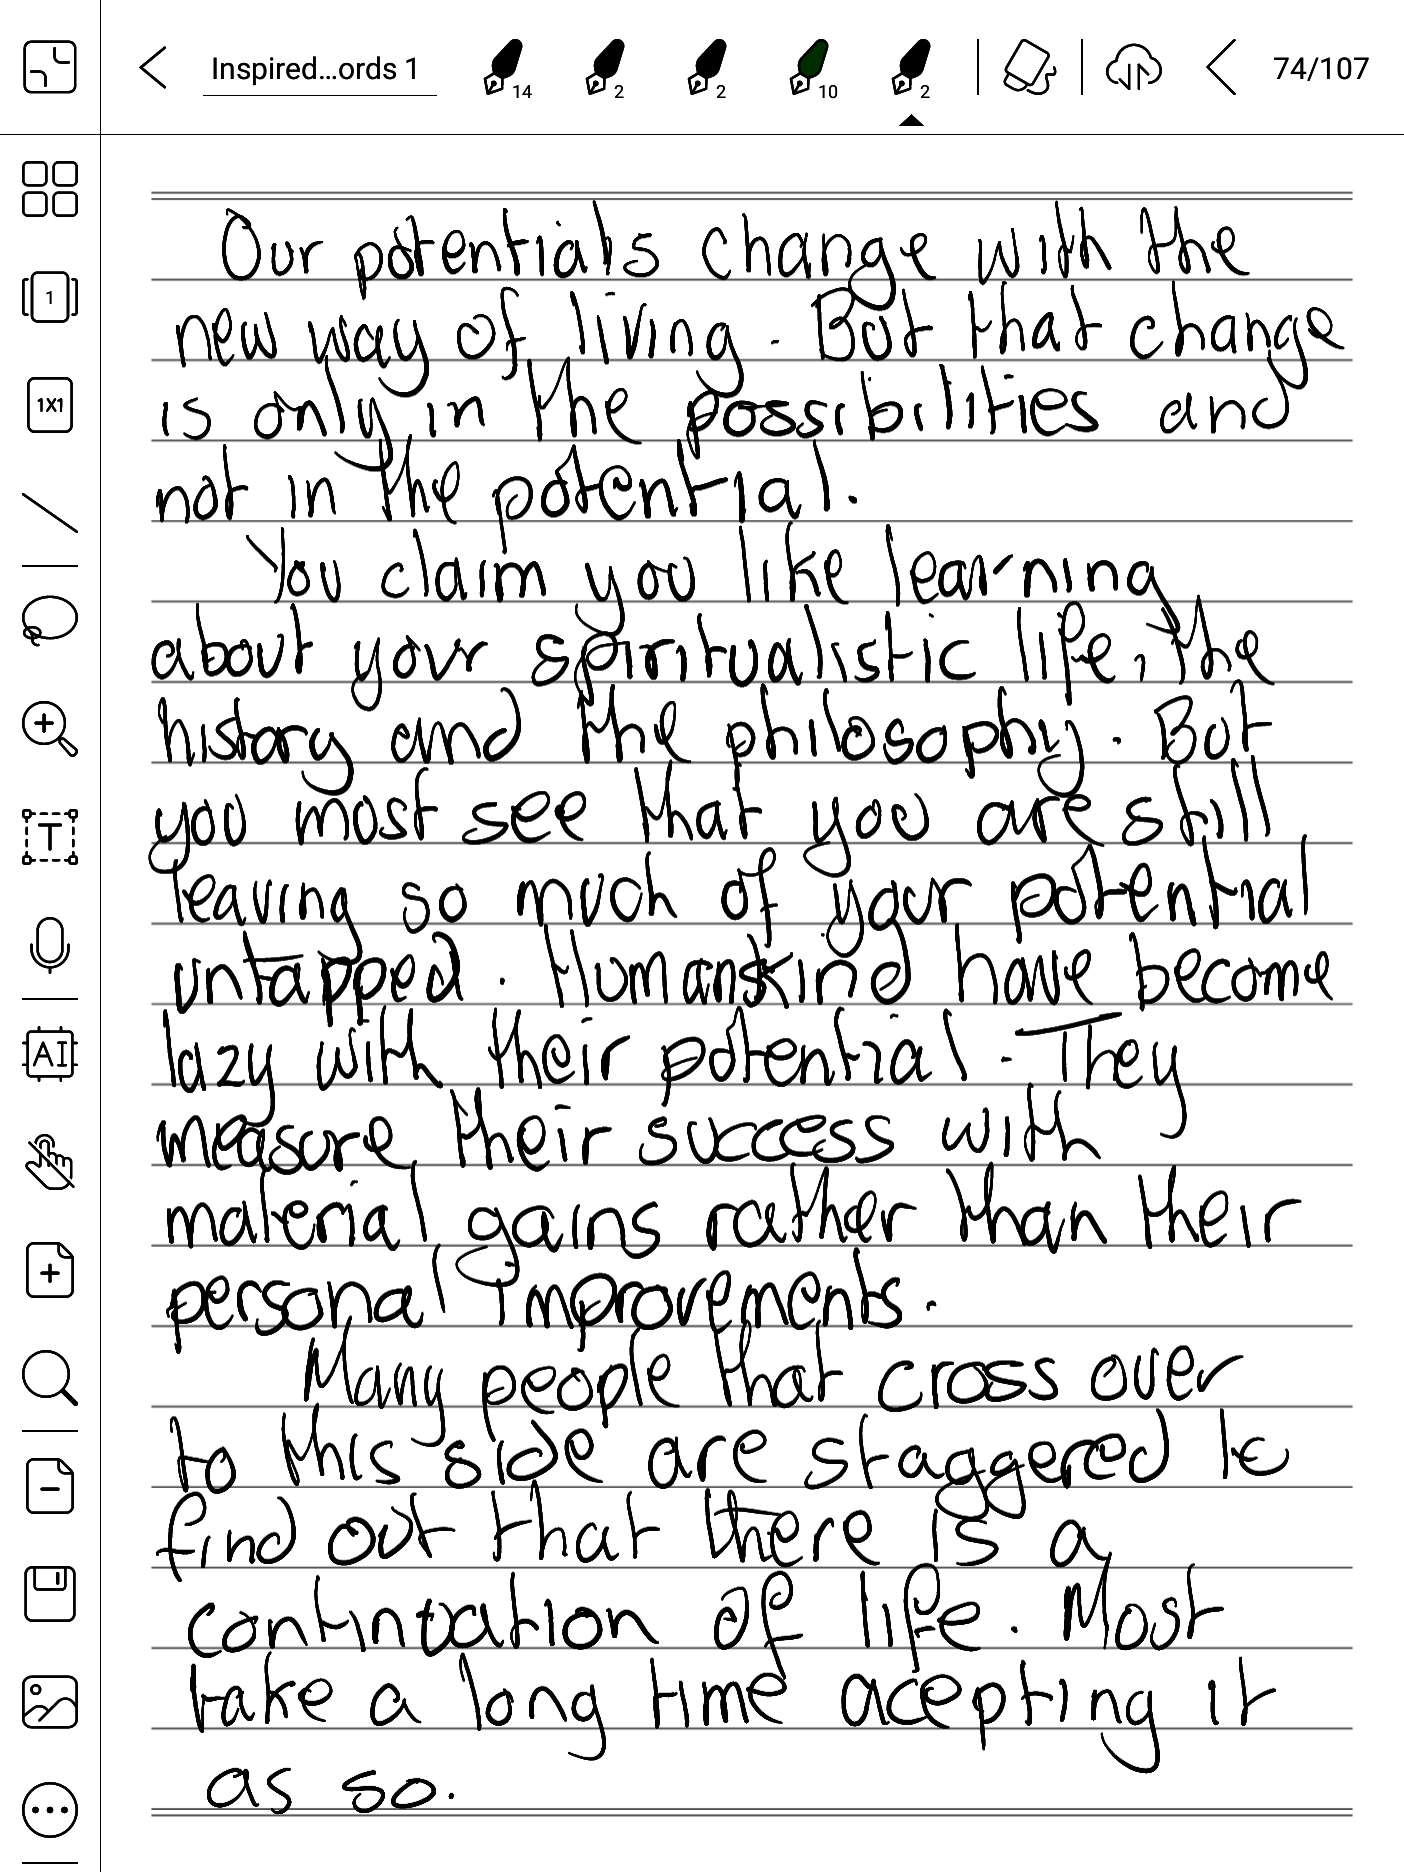 Inspired...ords 1
14
2
2
10
2
74/107
1
1X1
T
AI
Our potentials change with the
new way of living. But that change
is only in the possibilities and
not in the potential.
You claim you like learning
about your spiritualistic life, the
history and the philosophy. But
you most see that you are still
leaving so much of your potential
untapped. Humanskind have become
lazy with their potential. They
measure their success with
material gains rather than their
personal improvements.
Many people that cross over
to this side are staggered to
find out that there is a
continuation of life. Most
take a long time acepting it
as so.